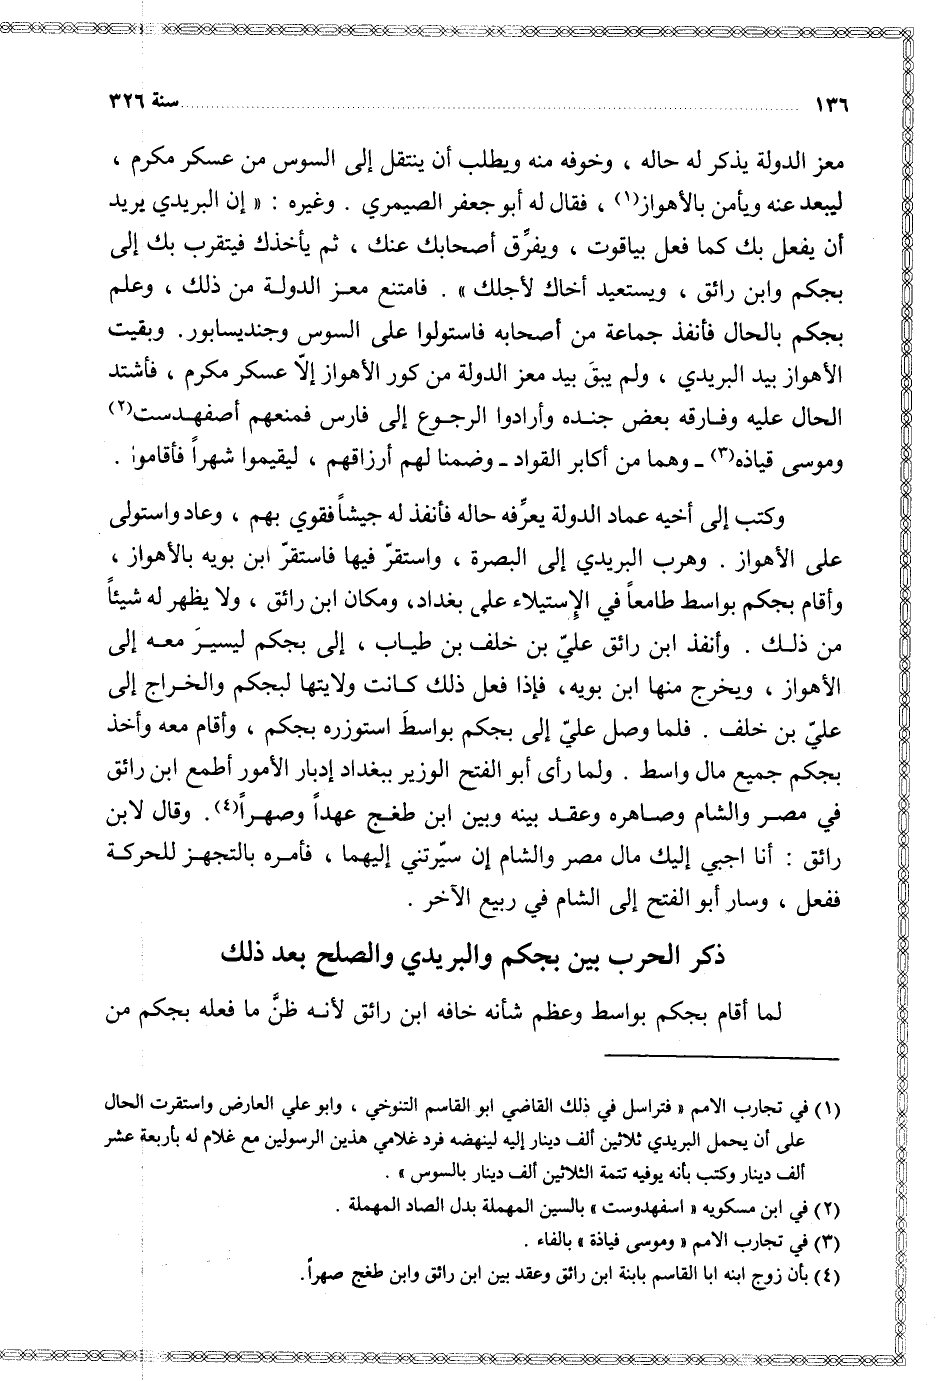 ١٣٦ ........................ سنة ٣٢٦
معز الدولة يذكر له حاله ، وخوفه منه ويطلب أن ينتقل إلى السوس من عسكر مكرم ،
ليبعد عنه ويأمن بالأهواز(١) ، فقال له أبو جعفر الصيمري . وغيره : « إن البريدي يريد
أن يفعل بك كما فعل بياقوت ، ويفرِّق أصحابك عنك ، ثم يأخذك فيتقرب بك إلى
بجكم وابن رائق ، ويستعيد أخاك لأجلك » . فامتنع معز الدولة من ذلك ، وعلم
بجكم بالحال فأنفذ جماعة من أصحابه فاستولوا على السوس وجنديسابور. وبقيت
الأهواز بيد البريدي ، ولم يبقَ بيد معز الدولة من كور الأهواز إلاّ عسكر مكرم ، فأشتد
الحال عليه وفارقه بعض جنده وأرادوا الرجوع إلى فارس فمنعهم أصفهدست(٢)
وموسى قياذه(٣) ـ وهما من أكابر القواد ـ وضمنا لهم أرزاقهم ، ليقيموا شهراً فأقاموا .
وكتب إلى أخيه عماد الدولة يعرِّفه حاله فأنفذ له جيشاً فقوي بهم ، وعاد واستولى
على الأهواز . وهرب البريدي إلى البصرة ، واستقرّ فيها فاستقرّ ابن بويه بالأهواز ،
وأقام بجكم بواسط طامعاً في الإستيلاء على بغداد، ومكان ابن رائق ، ولا يظهر له شيئاً
من ذلك . وأنفذ ابن رائق عليّ بن خلف بن طياب ، إلى بجكم ليسيرَ معه إلى
الأهواز ، ويخرج منها ابن بويه، فإذا فعل ذلك كانت ولايتها لبجكم والخراج إلى
عليّ بن خلف . فلما وصل عليّ إلى بجكم بواسطَ استوزره بجكم ، وأقام معه وأخذ
بجكم جميع مال واسط . ولما رأى أبو الفتح الوزير ببغداد إدبار الأمور أطمع ابن رائق
في مصر والشام وصاهره وعقد بينه وبين ابن طغج عهداً وصهراً(٤). وقال لابن
رائق : أنا اجبي إليك مال مصر والشام إن سيّرتني إليهما ، فأمره بالتجهز للحركة
ففعل ، وسار أبو الفتح إلى الشام في ربيع الآخر .
ذكر الحرب بين بجكم والبريدي والصلح بعد ذلك
لما أقام بجكم بواسط وعظم شأنه خافه ابن رائق لأنه ظنَّ ما فعله بجكم من
(١) في تجارب الامم « فتراسل في ذلك القاضي ابو القاسم التنوخي ، وابو علي العارض واستقرت الحال
على أن يحمل البريدي ثلاثين ألف دينار إليه لينهضه فرد غلامي هذين الرسولين مع غلام له بأربعة عشر
ألف دينار وكتب بأنه يوفيه تتمة الثلاثين ألف دينار بالسوس » .
(٢) في ابن مسكويه « اسفهدوست » بالسين المهملة بدل الصاد المهملة .
(٣) في تجارب الامم « وموسى فياذة » بالفاء .
(٤) بأن زوج ابنه ابا القاسم بابنة ابن رائق وعقد بين ابن رائق وابن طغج صهراً.